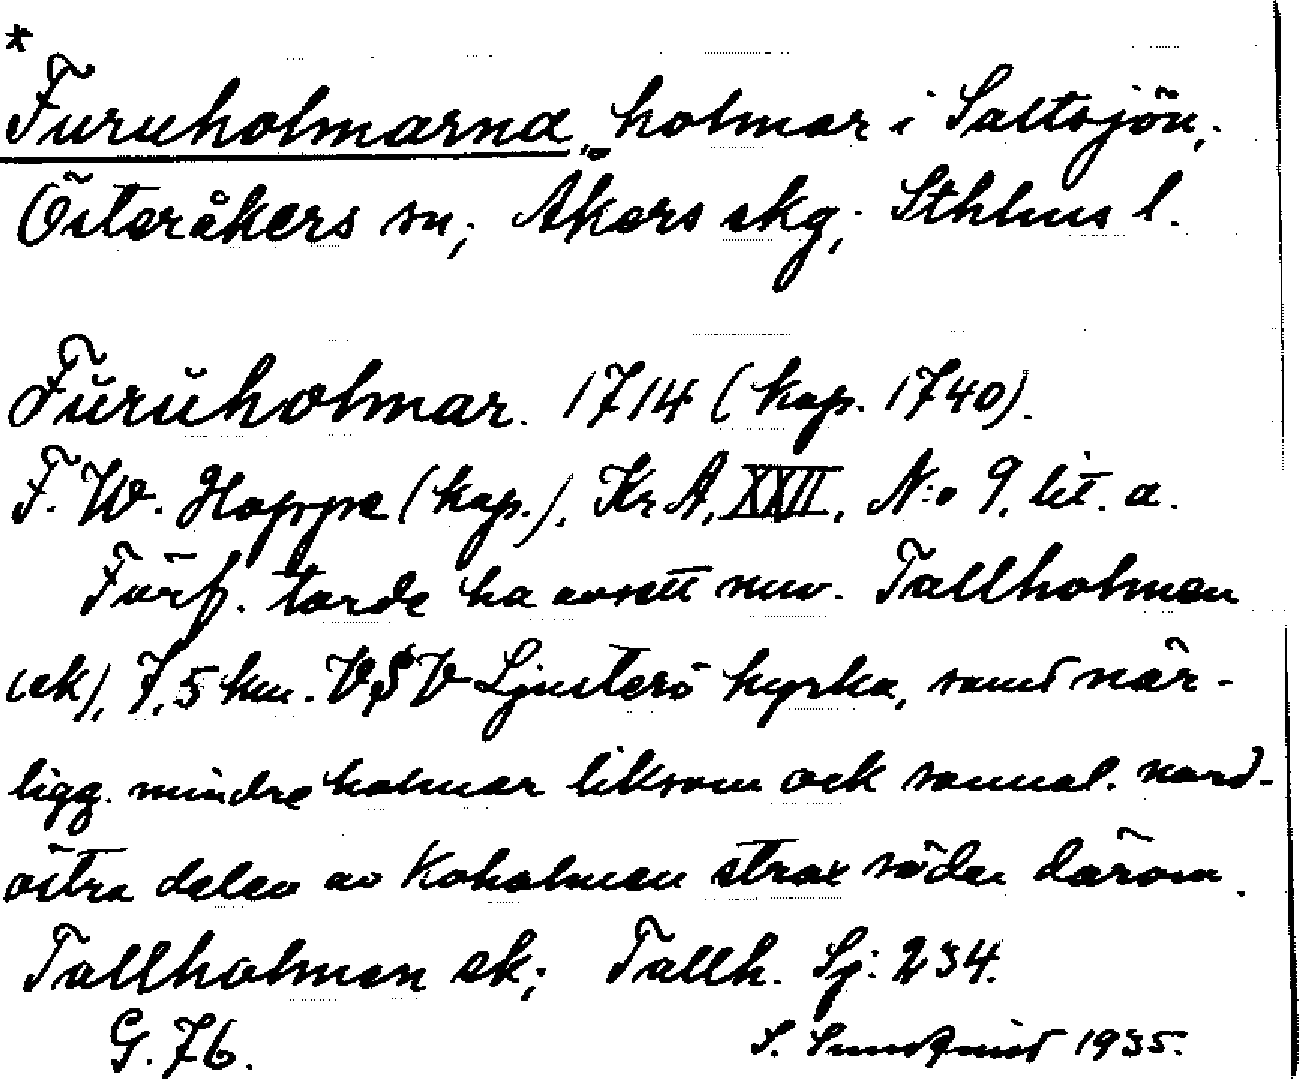 *
Furuholmarna, holmar i Saltsjön,
Österåkers sn, Åkers skg, Sthlms l.
Furuholmar. 1714 (kop. 1740).
F. W. Hoppe (kop.), Kr A, XXII, N:o 9, lit. a.
Förf. torde ha avsett nuv. Tallholmen
(ek), 7,5 km. VSV Ljusterö kyrka, samt när-
ligg. mindre holmar liksom ock sannol. nord-
östra delen av Koholmen strax söder därom.
Tallholmen ek; Tallh. Sj: 234.
G. 76. S. Sundqvist 1935.